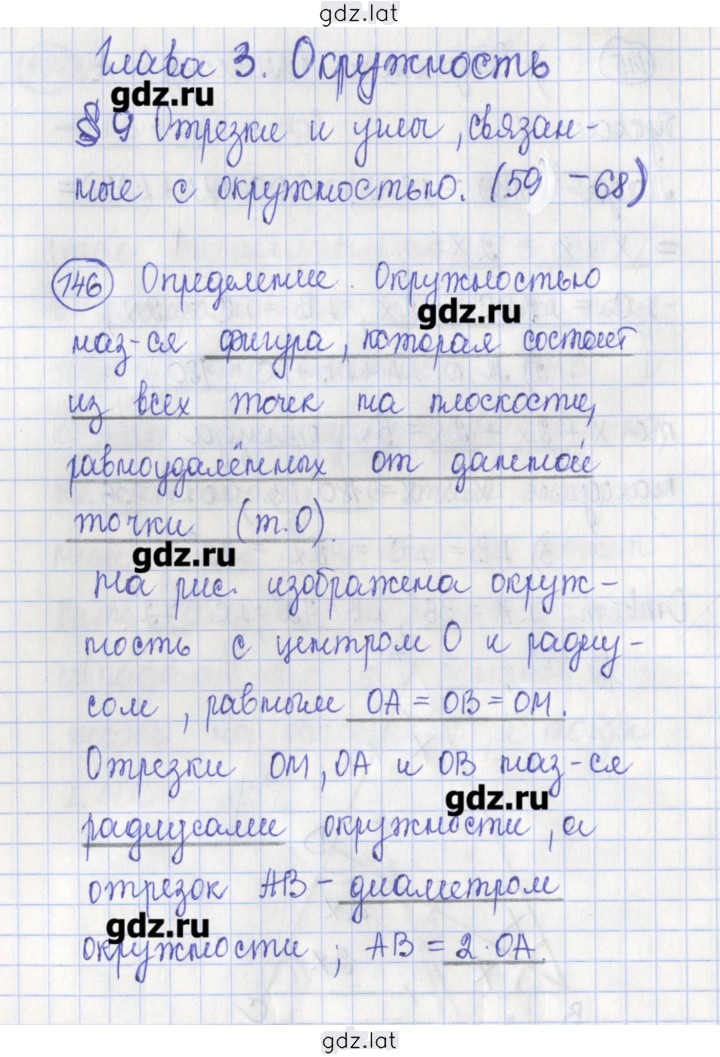 gdz.lat
Глава 3. Окружность
gdz.ru
§ 9 Отрезки и углы, связан-
ные с окружностью. (59 - 68)
146 Определение. Окружностью
gdz.ru
наз-ся фигура, которая состоит
из всех точек на плоскости,
равноудалённых от данной
точки (т.О).
gdz.ru
На рис. изображена окруж-
ность с центром О и радиу-
сом, равным OA = OB = OM.
Отрезки OM, OA и OB наз-ся
gdz.ru
радиусами окружности, а
отрезок AB - диаметром
gdz.ru
окружности; AB = 2 · OA.
gdz.lat